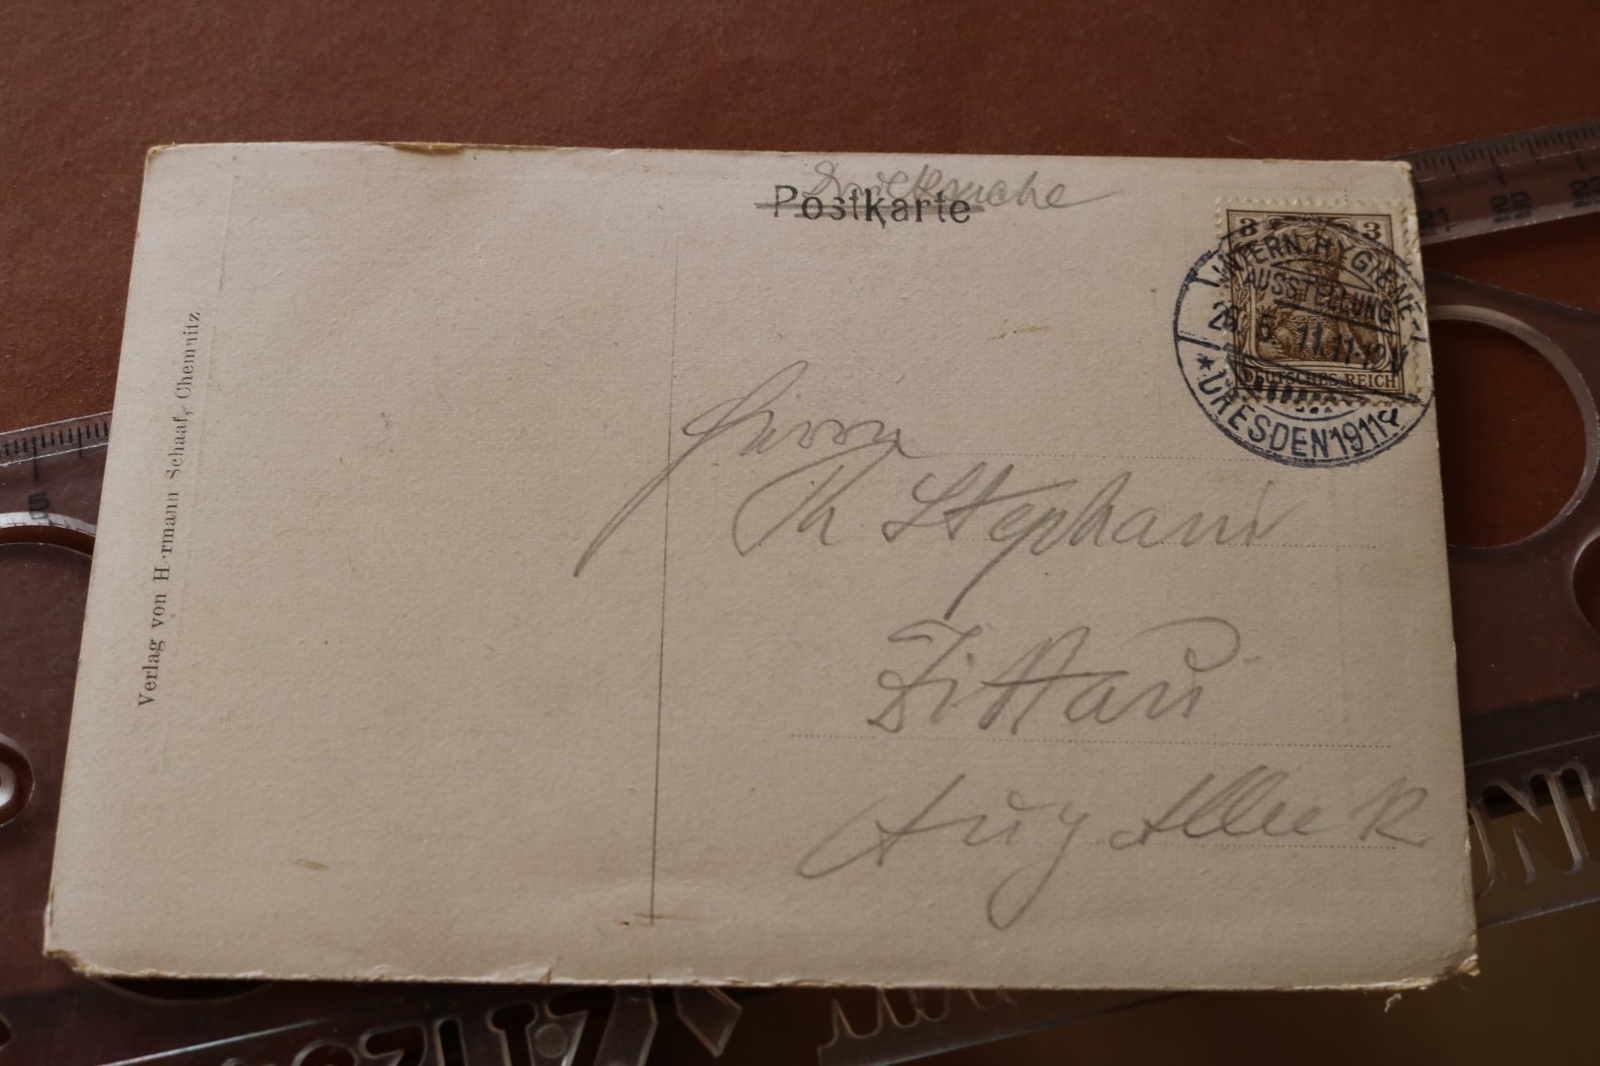 Postkarte
Drucksache
3 3
DEUTSCHES REICH
INTERN. HYGIENE-
AUSSTELLUNG
11.11-12V
* DRESDEN 1911
Verlag von H rmann Schaaf, Chemnitz
Herrn
Th Stephani
Zittau
5
21 22 23